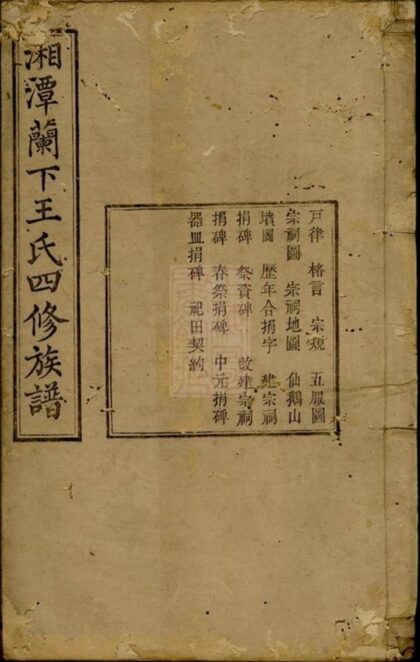 湘潭蘭下王氏四修族譜
戶律 格言 宗規 五服圖
宗祠圖 宗祠地圖 仙鵝山
墳圖 歷年合捐字 建宗祠
捐碑 祭資碑 改建宗祠
捐碑 春祭捐碑 中元捐碑
器皿捐碑 祀田契約